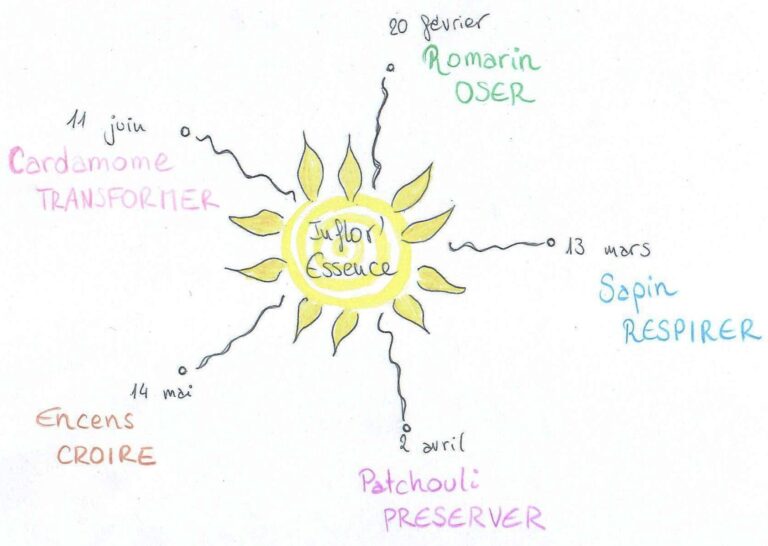 20 février
Romarin
OSER
11 juin
Cardamome
TRANSFORMER
Inflor'
Essence
13 mars
Sapin
RESPIRER
14 mai
Encens
CROIRE
2 avril
Patchouli
PRESERVER